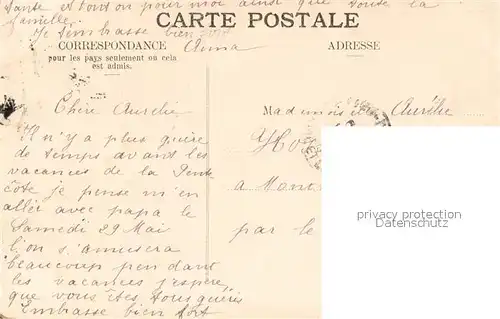 Santé et tout on pour moi ainsi que toute la
famille.
CARTE POSTALE
Je t'embrasse bien fort
Anna
CORRESPONDANCE
ADRESSE
pour les pays seulement ou cela
est admis.
Chère Aurelie
Mademoiselle Aurélie
Il n'y a plus guère
de temps avant les
vacances de la Pente
côte je pense m'en
allée avec papa le
Samedi 29 Mai
l'on s'amusera
beaucoup pen dant
les vacances j'espère
que vous êtes tous guéris
Embrasse bien fort
a
par le
privacy protection
Datenschutz